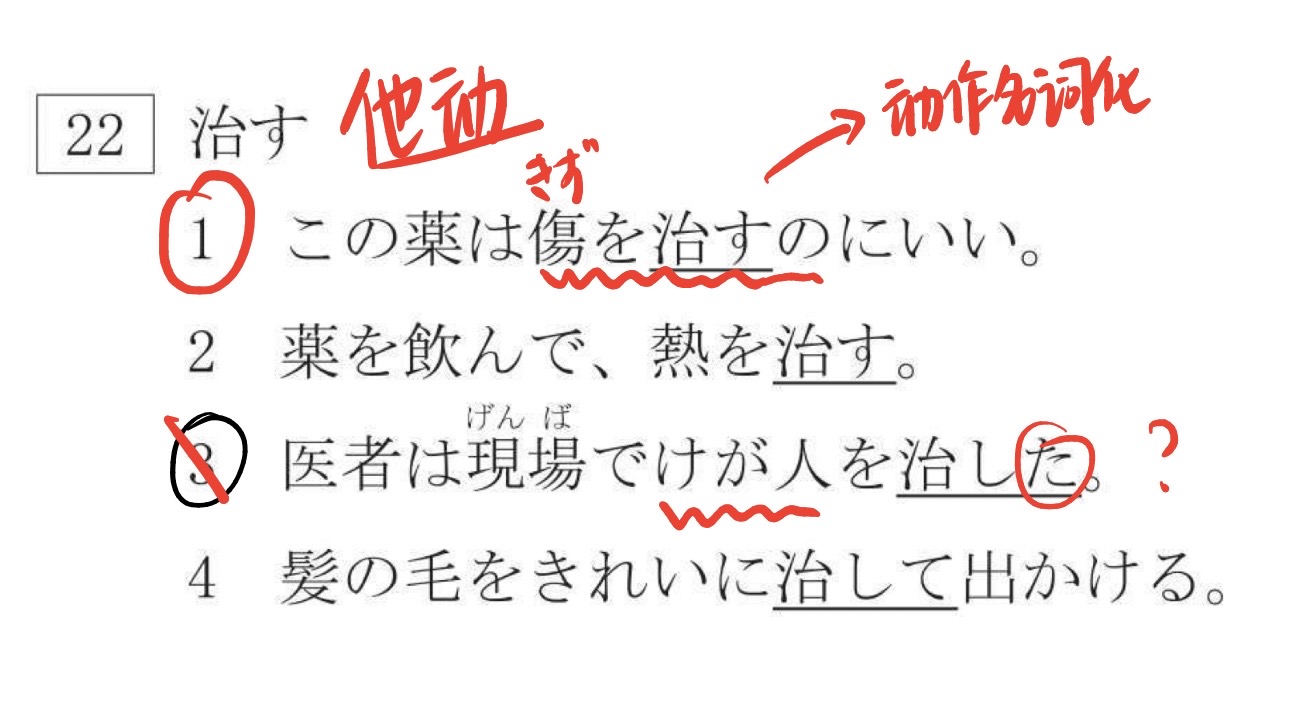 22 治す 他动
动作名词化
きず
1 この薬は傷を治すのにいい。
2 薬を飲んで、熱を治す。
げんば
3 医者は現場でけが人を治した。 ?
4 髪の毛をきれいに治して出かける。